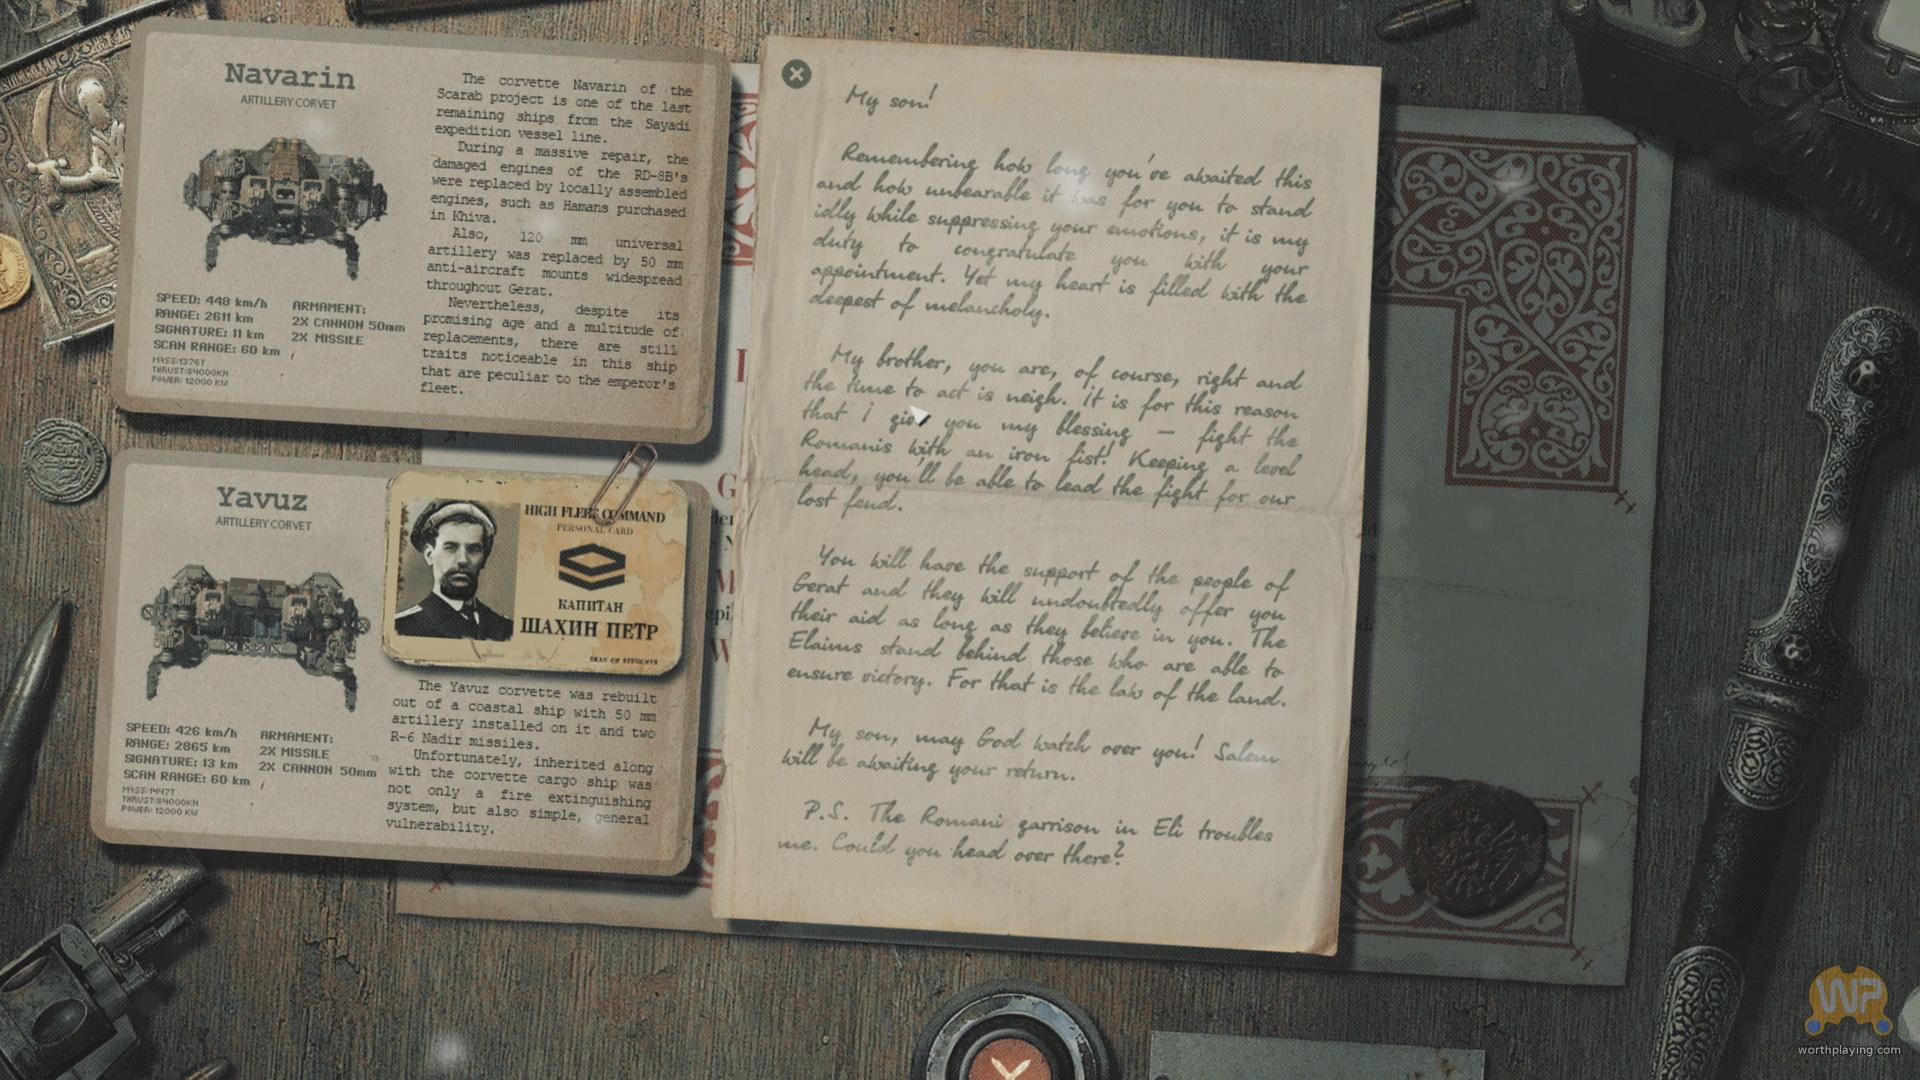 Navarin
ARTILLERY CORVET
SPEED: 448 km/h
RANGE: 2611 km
SIGNATURE: 11 km
SCAN RANGE: 60 km
MASS:1376T
THRUST:84000KN
POWER: 12000 KW
ARMAMENT:
2X CANNON 50mm
2X MISSILE
The corvette Navarin of the
Scarab project is one of the last
remaining ships from the Sayadi
expedition vessel line.
During a massive repair, the
damaged engines of the RD-8B's
were replaced by locally assembled
engines, such as Hamans purchased
in Khiva.
Also, 120 mm universal
artillery was replaced by 50 mm
anti-aircraft mounts widespread
throughout Gerat.
Nevertheless, despite its
promising age and a multitude of
replacements, there are still
traits noticeable in this ship
that are peculiar to the emperor's
fleet.
Yavuz
ARTILLERY CORVET
SPEED: 426 km/h
RANGE: 2865 km
SIGNATURE: 13 km
SCAN RANGE: 60 km
MASS:1447T
THRUST:84000KN
POWER: 12000 KW
ARMAMENT:
2X MISSILE
2X CANNON 50mm
HIGH FLEET COMMAND
PERSONAL CARD
КАПИТАН
ШАХИН ПЕТР
The Yavuz corvette was rebuilt
out of a coastal ship with 50 mm
artillery installed on it and two
R-6 Nadir missiles.
Unfortunately, inherited along
with the corvette cargo ship was
not only a fire extinguishing
system, but also simple, general
vulnerability.
My son!
Remembering how long you've awaited this
and how unbearable it was for you to stand
idly while suppressing your emotions, it is my
duty to congratulate you with your
appointment. Yet my heart is filled with the
deepest of melancholy.
My brother, you are, of course, right and
the time to act is neigh. It is for this reason
that I give you my blessing — fight the
Romanis with an iron fist! Keeping a level
head, you'll be able to lead the fight for our
lost feud.
You will have the support of the people of
Gerat and they will undoubtedly offer you
their aid as long as they believe in you. The
Elaims stand behind those who are able to
ensure victory. For that is the law of the land.
My son, may God watch over you! Salem
will be awaiting your return.
P.S. The Romani garrison in Eli troubles
me. Could you head over there?
WP
worthplaying.com